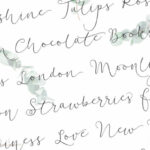 shine Tulips Ros
n Chocolate Books
s London Moonl
on Strawberries f
iness Love New